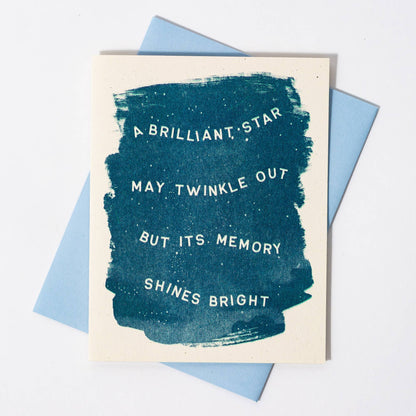 A BRILLIANT STAR
MAY TWINKLE OUT
BUT ITS MEMORY
SHINES BRIGHT